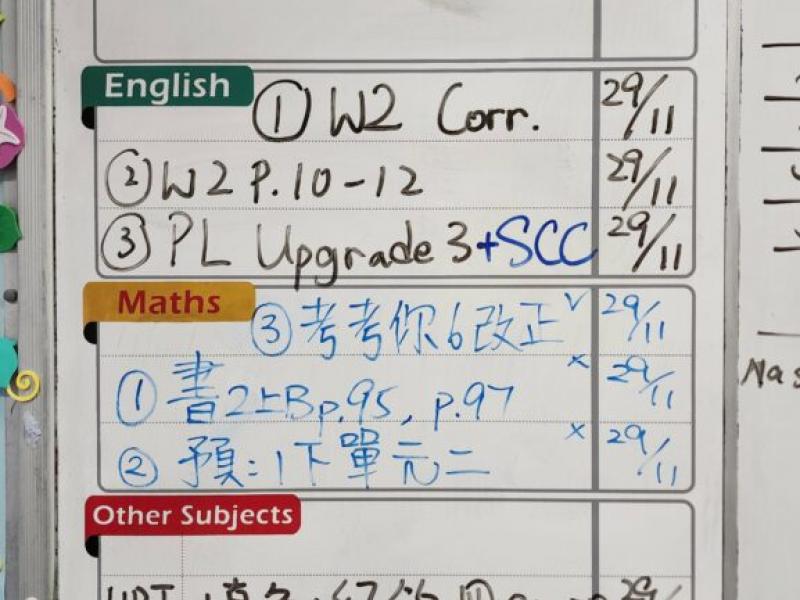 English
① W2 Corr. 29/11
② W2 P.10-12 29/11
③ PL Upgrade 3 +SCC 29/11
Maths
③ 考考你6改正 ✓ 29/11
① 書2上B p.95, p.97 × 29/11
② 預:1下單元二 × 29/11
Other Subjects
Nas